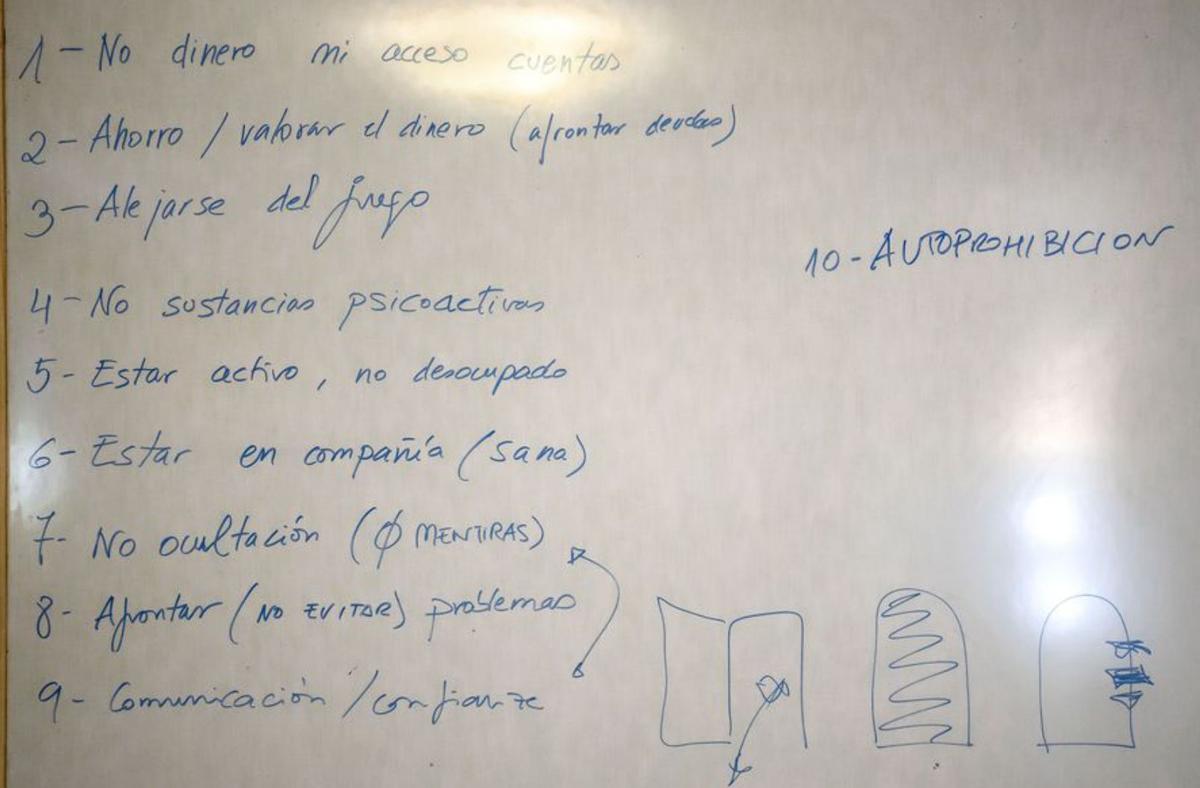 1- No dinero mi acceso cuentas
2- Ahorro / valorar el dinero (afrontar deudas)
3- Alejarse del juego
10- AUTOPROHIBICION
4- No sustancias psicoactivas
5- Estar activo, no desocupado
6- Estar en compañía (sana)
7- No ocultación (∅ MENTIRAS)
8- Afrontar (NO EVITAR) problemas
9- Comunicación / confianza